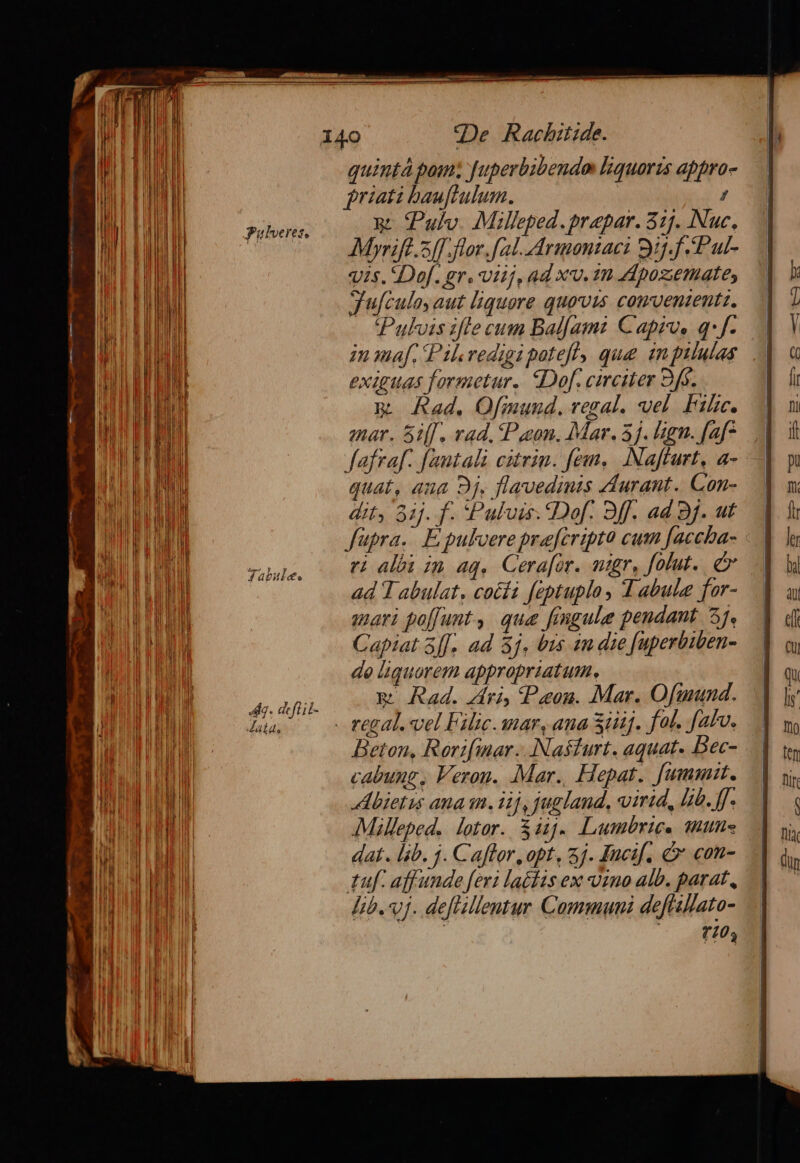 140 De Rachitide.
quintâ pom: ſuperbibendo liquoris appro-
priati hauſtulum.
Pulveres.
℞ Pulv. Milleped. præpar. ʒij. Nuc.
Myriſt. ʒſſ. flor. ſal. Armoniaci ℈ij. f. Pul-
vis. Doſ. gr. viij, ad xv. in Apozemate,
Juſculo, aut liquore quovis convenienti.
Pulvis iſte cum Balſami Capiv. q. ſ.
in maſ. Pil. redigi poteſt, quæ in pilulas
exiguas formetur. Doſ. circiter ℈ſſ.
℞ Rad. Oſmund. regal. vel Filic.
mar. ʒiſſ. rad. Pæon. Mar. ʒj. lign. ſaſ-
ſafraſ. ſantali citrin. ſem. Naſturt. a-
quat, ana ℈j. flavedinis Aurant. Con-
dit, ʒij. f. Pulvis. Doſ. ℈ſſ. ad ℈j. ut
ſupra. E pulvere præſcripto cum ſaccha-
Tabulæ.
ri albi in aq. Ceraſor. nigr. ſolut. &
ad Tabulat. cocti ſeptuplo, Tabulæ for-
mari poſſunt, quæ ſingulæ pendant ʒj.
Capiat ʒſſ. ad ʒj. bis in die ſuperbiben-
do liquorem appropriatum.
Aq. deſtil-
lata.
℞ Rad. Ari, Pæon. Mar. Oſmund.
regal. vel Filic. mar. ana ℥iiij. fol. ſalv.
Beton. Roriſmar. Naſturt. aquat. Bec-
cabung. Veron. Mar. Hepat. ſummit.
Abietis ana m. iij, jugland. virid. lib. ſſ.
Milleped. lotor. ℥iij. Lumbric. mun-
dat. lib. j. Caſtor. opt. ʒj. Inciſ. & con-
tuſ. affunde ſeri lactis ex vino alb. parat.
lib. vj. deſtillentur Communi deſtillato-
rio,